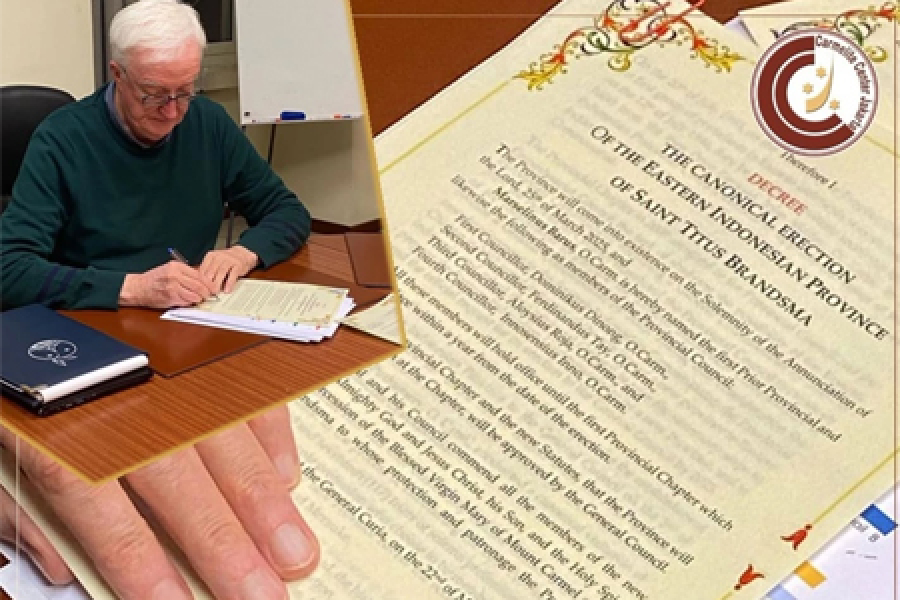 Carmelite Center Jakarta
Therefore I
DECREE
THE CANONICAL ERECTION
OF THE EASTERN INDONESIAN PROVINCE
OF SAINT TITUS BRANDSMA
The Province will come into existence on the Solemnity of the Annunciation of
the Lord, 25th of March 2025, and
Marcelinus Barus, O.Carm. is hereby named the first Prior Provincial and
likewise the following as members of the Provincial Council:
First Councillor, Dominikus Doweng, O.Carm,
Second Councillor, Ferdinandus Tay, O.Carm,
Third Councillor, Aloysius Roja, O.Carm, and
Fourth Councillor, Innosensius Enno, O.Carm.
these members will hold office until the first Provincial Chapter which
within a year from the date of the erection.
Chapter and the new Statutes that the Province will
at the Chapter, will be approved by the General Council.
and his Council commend all the members of the new
Almighty God and Jesus Christ, his Son, and the Holy
of the Blessed Virgin Mary of Mount Carmel
to whose protection and patronage the
the General Curia, on the 22nd of